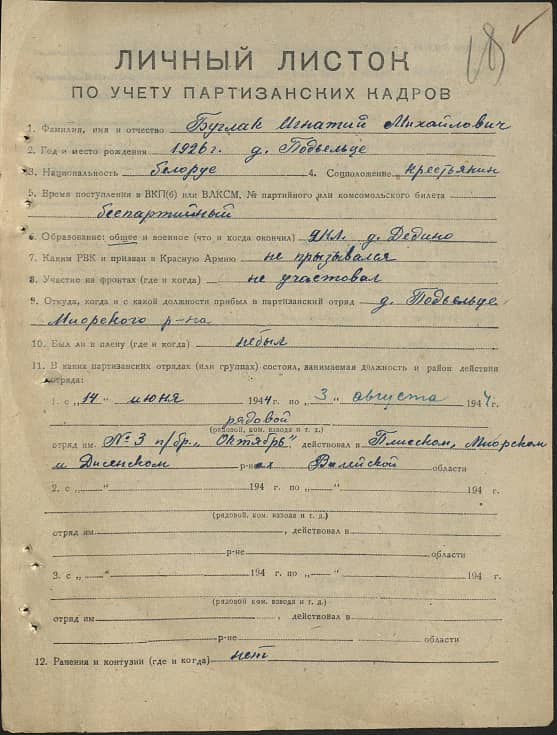 18
ЛИЧНЫЙ ЛИСТОК
ПО УЧЕТУ ПАРТИЗАНСКИХ КАДРОВ
1. Фамилия, имя и отчество Буглак Игнатий Михайлович
2. Год и место рождения 1926 г. д. Подъельце
3. Национальность белорус 4. Соцположение крестьянин
5. Время поступления в ВКП(б) или ВЛКСМ, № партийного или комсомольского билета
беспартийный
6. Образование: общее и военное (что и когда окончил) 9 кл. д. Дедино
7. Каким РВК и призван в Красную Армию не прызывался
8. Участие на фронтах (где и когда) не участовал
9. Откуда, когда и с какой должности прибыл в партизанский отряд д. Подъельце
Миорского р-на
10. Был ли в плену (где и когда) небыл
11. В каких партизанских отрядах (или группах) состоял, занимаемая должность и район действия
отряда:
1. с „14" июня 1944 г. по „3" августа 1944 г.
рядовой
(рядовой, ком. взвода и т. д.)
отряд им. № 3 п/бр. „Октябрь", действовал в Плисском, Миорском
и Дисенском р-нах Вилейской области
2. с „ " 194 г. по „ " 194 г.
(рядовой, ком. взвода и т. д.)
отряд им. , действовал в
р-не области
3. с „ " 194 г. по „ " 194 г.
(рядовой, ком. взвода и т. д.)
отряд им. , действовал в
р-не области
12. Ранения и контузии (где и когда) нет